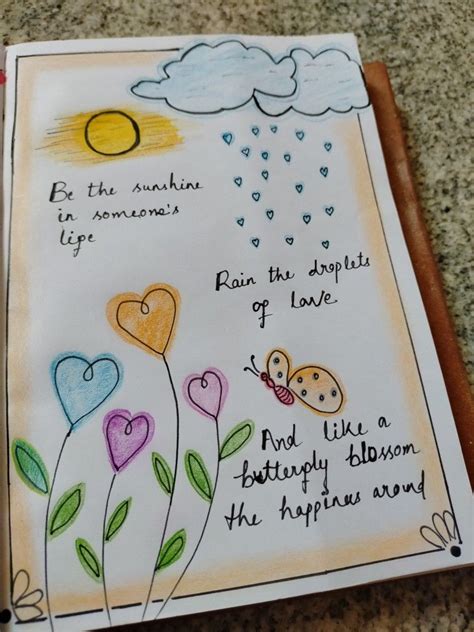 Be the sunshine
in someone's
life
Rain the droplets
of love
And like a
butterfly blossom
the happiness around